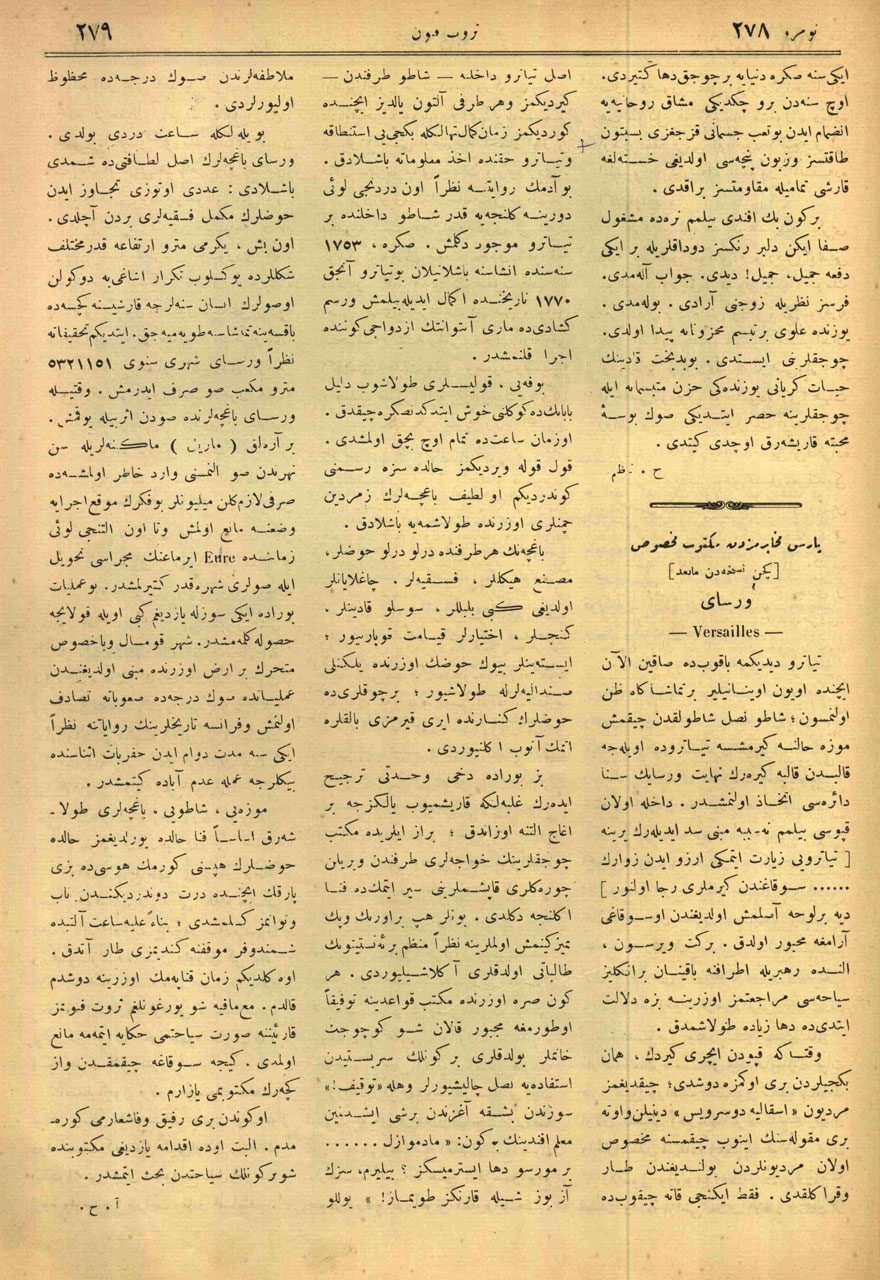 نومرو ٢٧٨
ثروت فنون
٢٧٩
ایكی سنه صكره دنیایه بر چوجق دها كتیردی.
اوچ سنه‌دن برو چكدیكی مشاق روحانیه‌یه
انضمام ایدن بوتعب جسمانی قزجغزی بسبتون
طاقتسز وزبون پنچه‌سی اولدیغی خسته‌لغه
قارشی تمامیله مقاومتسز براقدی.
بركون بك افندی بیلمم نره‌ده مشغول
صفا ایكن دلبر رنكسز دوداقلریله بر ایكی
دفعه جمیل، جمیل! دیدی. جواب آله‌مدی.
فرسز نظریله زوجنی آرادی. بوله‌مدی.
یوزنده علوی بر تبسم محزونانه پیدا اولدی.
چوجقلرینی ایستدی. بوبدبخت قادینك
حیات كریانی یوزنده‌كی حزن متبسمانه ایله
چوجقلرینه حصر ایتدیكی صوك بوسهٔ
محبته قاریشه‌رق اوچدی كیتدی.
ح. ناظم
پارس مخابرمزدن مكتوب مخصوص
[كچن نسخه‌دن مابعد]
ورسای
— Versailles —
تیاترو دیدیكمه باقوب‌ده صاقین الآن
ایچنده اویون اوینانیلیر بر تماشاكاه ظن
اولنمسون؛ شاطو نصل شاطولقدن چیقمش
موزه حالنه كیرمشسه تیاتروده اویله‌جه
قالبدن قالبه كیره‌رك نهایت ورسایك سنا
دائره‌سی اتخاذ اولنمشدر. داخله اولان
قپوسی بیلمم نه‌سببه مبنی سد ایدیله‌رك یرینه
[ تیاترویی زیارت ایتمكی ارزو ایدن زوارك
...... سوقاغندن كیرملری رجا اولنور ]
دیه برلوحه آصلمش اولدیغندن اوسوقاغی
آرامغه مجبور اولدق. بركت ویرسون،
النده رهبریله اطرافنه باقینان برانكلیز
سیاحه‌سی مراجعتمز اوزرینه بزه دلالت
ایتدی‌ده دها زیاده طولاشمدق.
وقتاكه قپودن ایچری كیردك، همان
بكجیلردن بری اوكمزه دوشدی؛ چیقدیغمز
مردیون «اسقالیه دوسرویس» دینیلن واوته
بری مقوله‌سنك اینوب چیقمسنه مخصوص
اولان مردیونلردن بولندیغندن طار
وقراكلقدی. فقط ایكنجی قاته چیقوب‌ده
اصل تیاترو داخلنه — شاطو طرفندن —
كیردیكمز وهر طرفی آلتون یالدیز ایچنده
كوردیكمز زمان كمال تهالكله بكجی‌یی استنطاقه
وتیاترو حقنده اخذ معلوماته باشلادق.
بوآدمك روایتنه نظراً اون دردنجی لوئی
دورینه كلنجه‌یه قدر شاطو داخلنده بر
تیاترو موجود دكلمش. صكره، ١٧٥٣
سنه‌سنده انشاسنه باشلانیلان بوتیاترو آنجق
١٧٧٠ تاریخنده اكمال ایدیله‌بیلمش ورسم
كشادی‌ده ماری آنتوانتك ازدواجی كوننده
اجرا قلنمشدر.
بوفه‌یی، قولیسلری طولاشوب دلیل
بابابك‌ده كوكلنی خوش ایتدكدنصكره چیقدق.
اوزمان ساعت‌ده تمام اوچ بچق اولمشدی.
قول قوله ویردیكمز حالده سزه رسمنی
كوندردیكم او لطیف باغچه‌لرك زمردین
چمنلری اوزرنده طولاشمه‌یه باشلادق.
باغچه‌نك هر طرفنده درلو درلو حوضلر،
مصنع هیكللر، فسقیه‌لر. چاغلایانلر
اولدیغی كبی بلبللر، سوسلو قادینلر.
كنجلر، اختیارلر قیامت قوپارییور؛
ایسته‌ینلر بیوك حوضك اوزرنده یلكنلی
صندالیه‌لرله طولاشیور؛ برچوقلری‌ده
حوضلرك كنارنده ایری قیرمزی بالقلره
اتمك آتوب اكلنیوردی.
بز بوراده دخی وحدتی ترجیح
ایده‌رك غلبه‌لكه قاریشمیوب یالكزجه بر
اغاج التنه اوزاندق؛ براز ایلریده مكتب
چوجقلرینك خواجه‌لری طرفندن ویریلن
چوره‌كلری قاپیشملرینی سیر ایتمك‌ده فنا
اكلنجه دكلدی. بونلر هپ براورنك وپك
تمیز كینمش اولملرینه نظراً منظم برئه‌نستیتونك
طالباتی اولدقلری آكلاشیلیوردی. هر
كون صره اوزرنده مكتب قواعدینه توفیقاً
اوطورمغه مجبور قالان شو كوچوجك
خانملر بولدقلری بركونلك سربستیدن
استفاده‌یه نصل چالیشیورلر وهله «توقیف!»
سوزندن بشقه آغزندن برشی ایشدنین
معلم افندینك بوكون: «مادموازل......
بر مورسو دها ایسترمیسكز؟ بیلیرم، سزك
آز بوز شیله قارنكز طویماز!» یوللو
ملاطفه‌لرندن صوك درجه‌ده محظوظ
اولیورلردی.
بویله‌لكله ساعت دردی بولدی.
ورسای باغچه‌لرك اصل لطافتی‌ده شمدی
باشلادی: عددی اوتوزی تجاوز ایدن
حوضلرك مكمل فسقیه‌لری بردن آچلدی.
اون بش، یكرمی مترو ارتفاعه قدر مختلف
شكللرده یوكسلوب تكرار اشاغی‌یه دوكولن
اوصولرك انسان سنه‌لرجه قارشیسنه كچه‌ده
باقسه ینه تماشاسنه طویه‌میه‌جق. ایتدیكم تحقیقاته
نظراً ورسای شهری سنوی ٥٣٢١١٥١
مترو مكعب صو صرف ایدرمش. وقتیله
ورسای باغچه‌لرنده صودن اثر بیله یوقمش.
بر آره‌لق ( مارین ) ماكنه‌لریله سن
نهرندن صو النمسی وارد خاطر اولمشسه‌ده
صرفی لازم كلن میلیونلر بوفكرك موقع اجرایه
وضعنه مانع اولمش وتا اون التنجی لوئی
زماننده Eure ایرماغنك مجراسی تحویل
ایله صولری شهره قدر كتیرلمشدر. بوعملیات
بوراده ایكی سوزله یازدیغم كبی اویله قولایجه
حصوله كلمه‌مشدر. شهر قومسال وباخصوص
متحرك بر ارض اوزرنده مبنی اولدیغندن
عملیاتده صوك درجه‌ده صعوباته تصادف
اولنمش وفرانسه تاریخلرینك روایاتنه نظراً
ایكی سه مدت دوام ایدن حفریات اثناسنده
بیكلرجه عمله عدم آباده كیتمشدر.
موزه‌یی، شاطویی، باغچه‌لری طولا-
شه‌رق اساساً فنا حالده یورلدیغمز حالده
حوضلرك هپسنی كورمك هوسی‌ده بزی
پارقك ایچنده درت دوندردیكندن تاب
وتوانمز كسلمشدی؛ بناءً علیه ساعت آلتیده
شمندوفر موقفنه كندیمزی طار آتدق.
اوه كلدیكم زمان قناپه‌مك اوزرینه دوشدم
قالدم. مع‌مافیه شو یورغونلغم ثروت فنونمز
قارئیننه صورت سیاحتمی حكایه ایتمه‌مه مانع
اولمدی. كیجه سوقاغه چیقمقدن واز
كچه‌رك مكتوبمی یازارم.
اوكوندن بری رفیق وفاشعارمی كوره-
مدم. البت اوده اقدامه یازدیغی مكتوبنده
شو بركونلك سیاحتدن بحث ایتمشدر.
آ. ح.